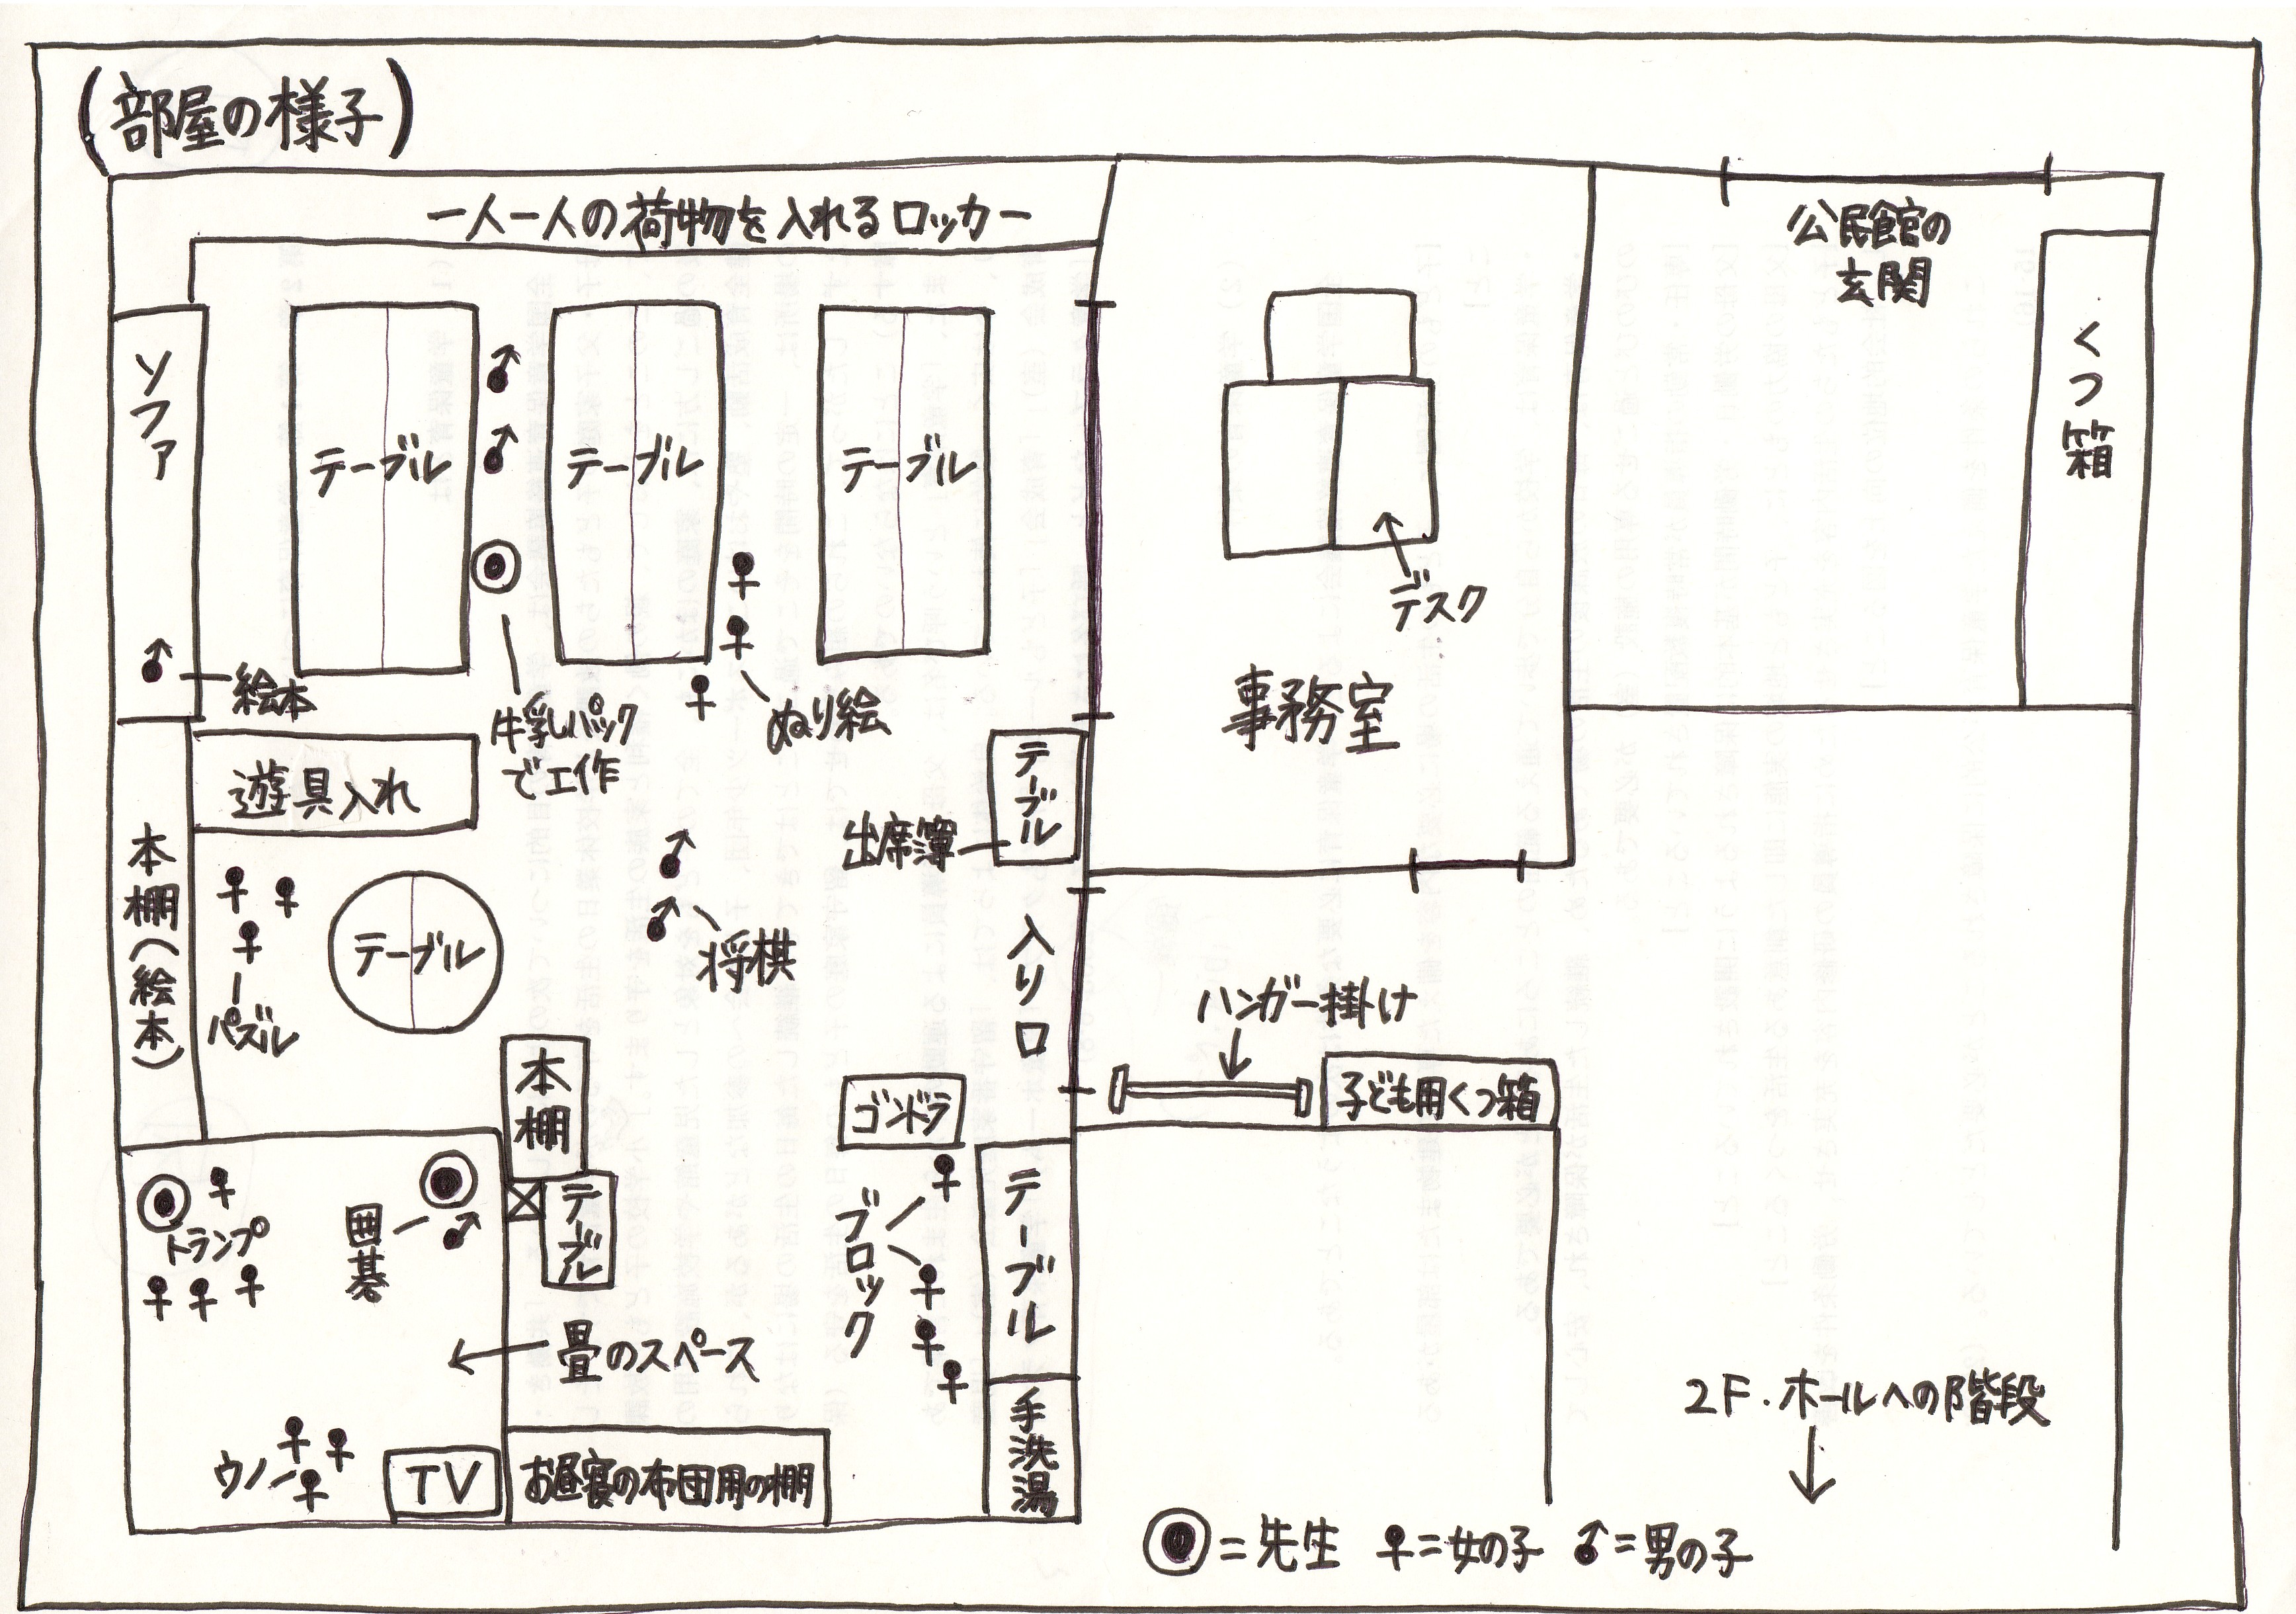 (部屋の様子)
一人一人の荷物を入れるロッカー
公民館の
玄関
くつ箱
ソファ
テーブル
テーブル
テーブル
デスク
絵本
牛乳パック
で工作
ぬり絵
事務室
遊具入れ
テーブル
出席簿
本棚(絵本)
テーブル
パズル
将棋
入り口
ハンガー掛け
子ども用くつ箱
本棚
ゴンドラ
トランプ
囲碁
テーブル
ブロック
テーブル
畳のスペース
手洗湯
2F.ホールへの階段
ウノ
TV
お昼寝の布団用の棚
◎=先生 ♀=女の子 ♂=男の子